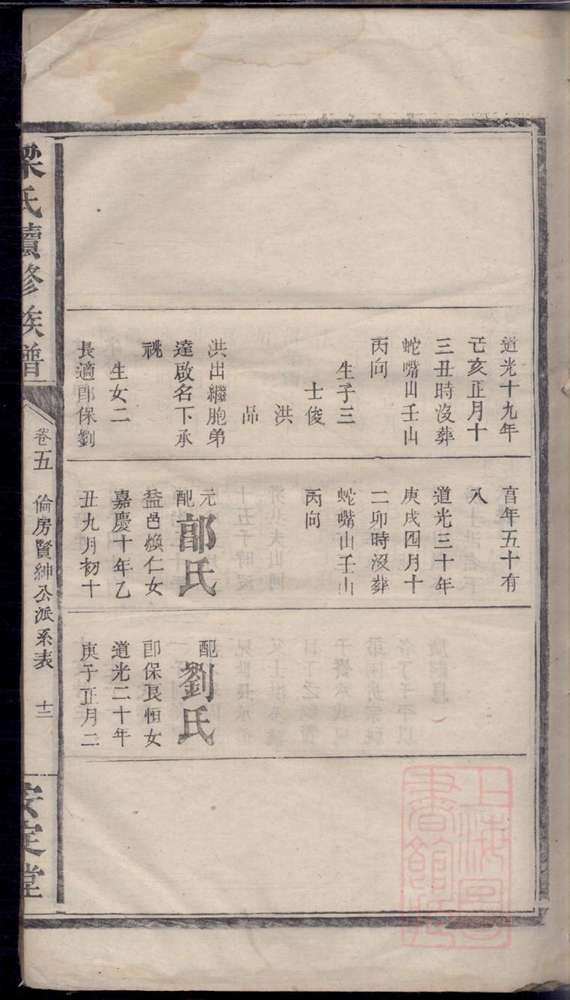 道光十九年
己亥正月十
三丑時沒葬
蛇嘴山壬山
丙向
生子三
士俊
洪
品
洪出繼胞弟
達啟名下承
祧
生女二
長適郎保劉
享年五十有
八
道光三十年
庚戌四月十
二卯時沒葬
蛇嘴山壬山
丙向
元配郭氏
益邑煥仁女
嘉慶十年乙
丑九月初十
配劉氏
郎保長恒女
道光二十年
庚子正月二
梁氏續修族譜
卷五 倫房賢紳公派系表 十二
安定堂
上海圖書館藏